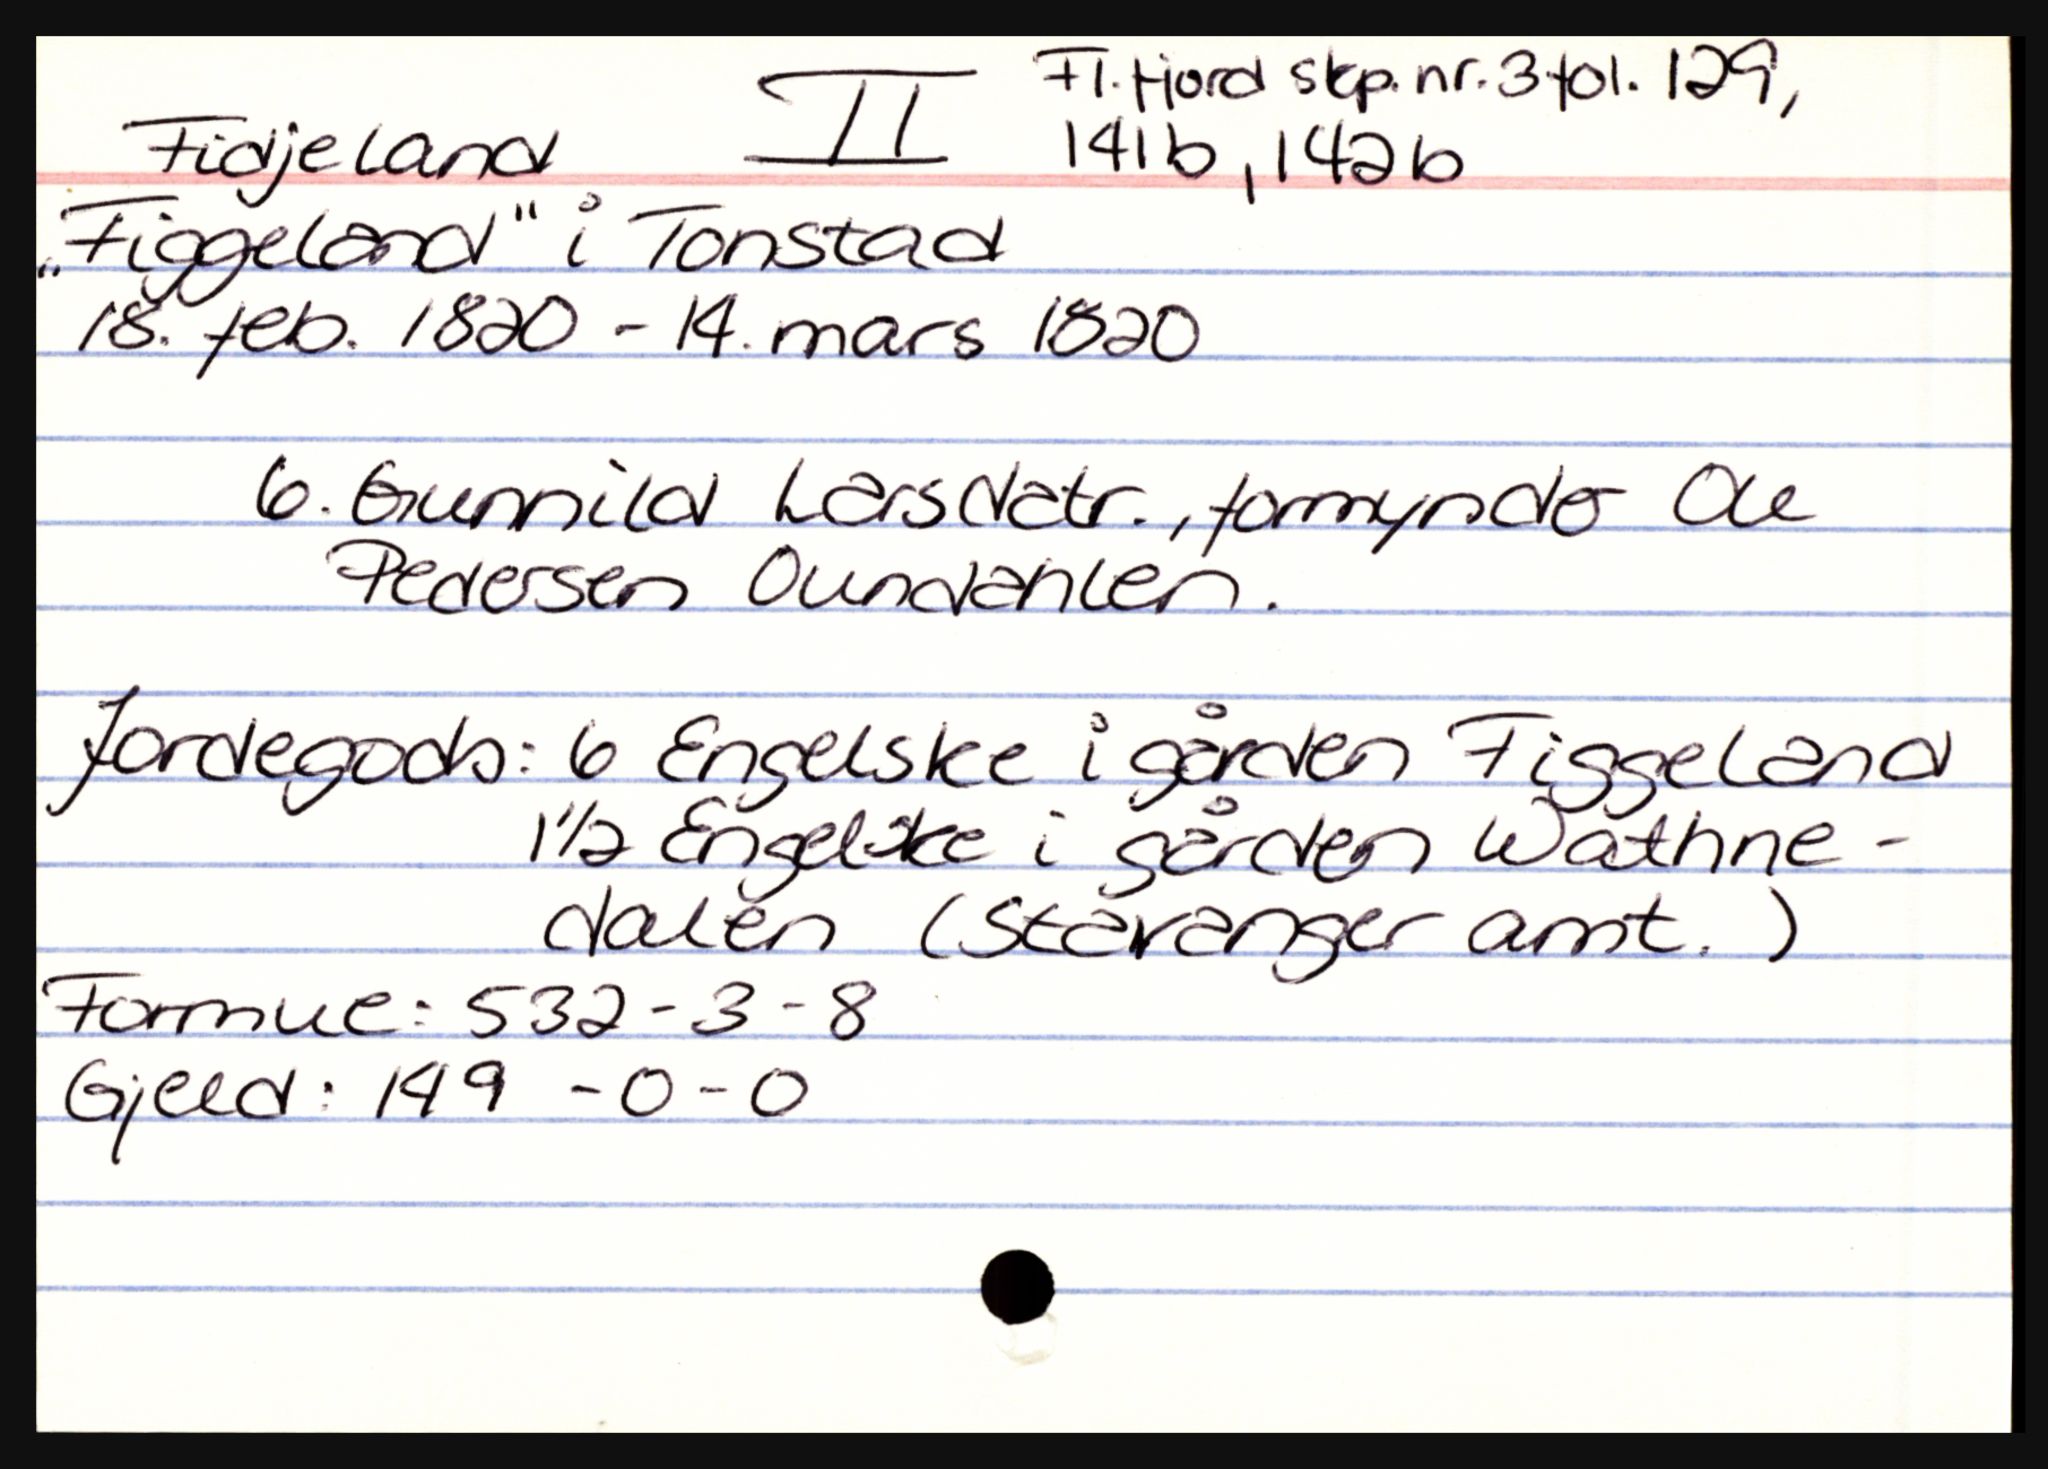 Fl.fjord skp. nr. 3 fol. 129,
Fidjeland II 141b, 142b
„Figgeland" i Tonstad
18. feb. 1820 - 14. mars 1820
6. Gunnild Larsdatr., formynder Ole
Pedersen Oundahlen.
Jordegods: 6 Engelske i gården Figgeland
1 1/2 Engelske i gården Wathne-
dalen (Stavanger amt.)
Formue: 532 - 3 - 8
Gjeld: 149 - 0 - 0